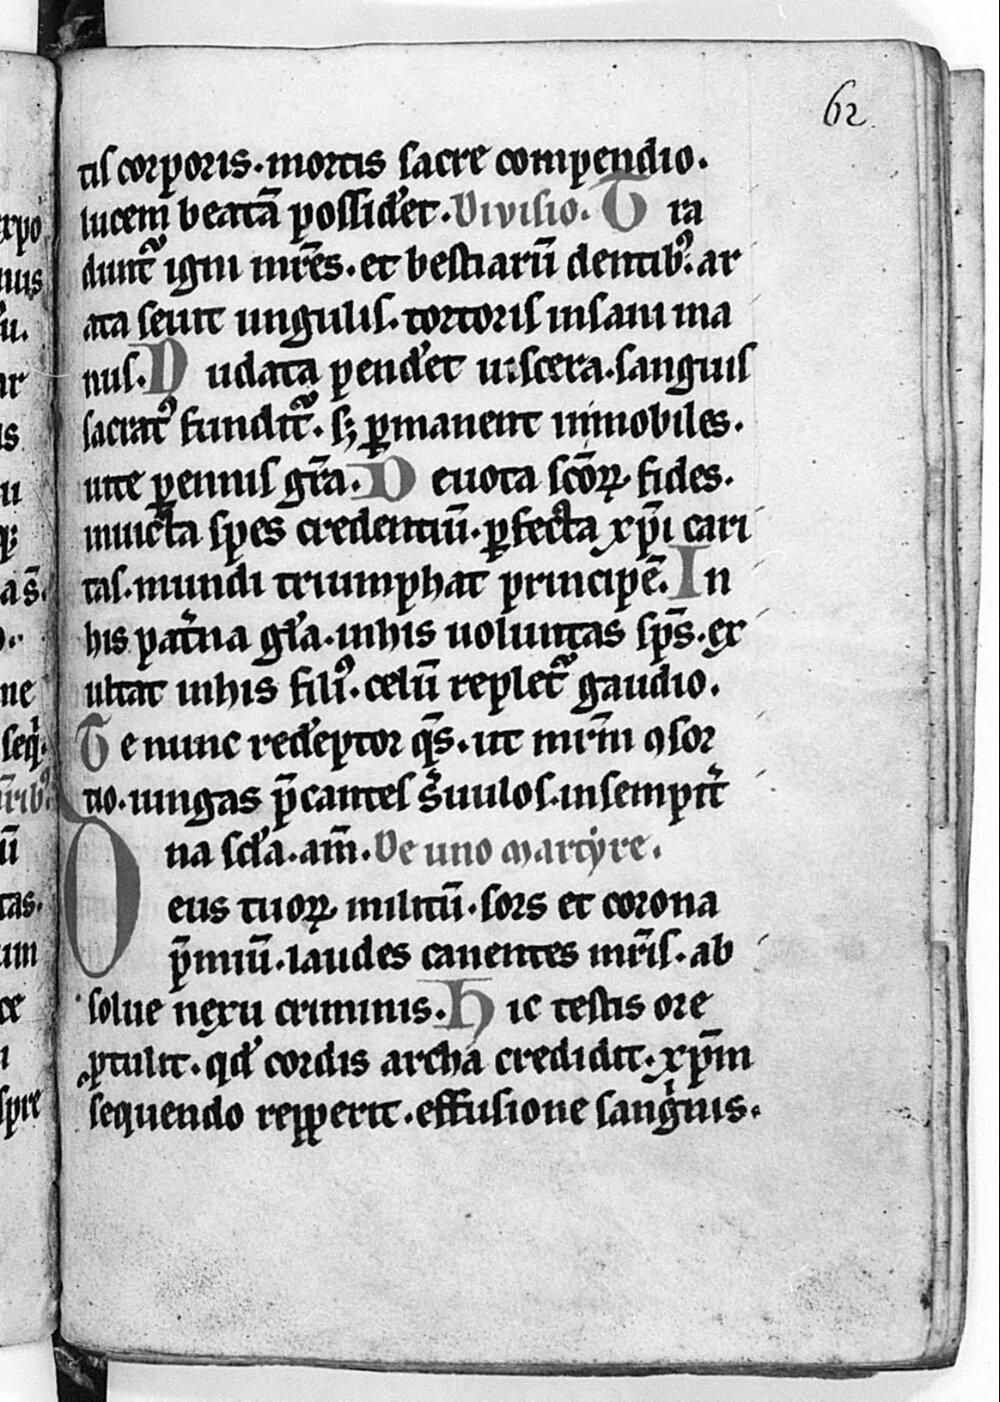 62
tis corporis. mortis sacre compendio.
lucem beatā possid̄et. Divisio. Tra
dunt᷑ igni mr̄es. et bestiarū dentib᷒. ar
ata seuit ungulis. tortoris insani ma
nus. Nudata pend̄et uiscera. sanguis
sacrat᷒ fundit᷑. sꝫ ꝑmanent inmobiles.
uite ꝑennis gr̄a. Deuota scōꝝ fides.
inuicta spes credentiū. ꝑfecta xp̄i cari
tas. mundi triumphat principē. In
his pat̄na gl̄a. inhis uoluntas sp̄s. ex
ultat inhis fili᷒. celū replet᷑ gaudio.
Te nunc red̄eptor qs̄. ut mr̄m ꝯsor
tio. iungas p̄cantes s̄uulos. insempit̄
na scl̄a. am̄. De uno martyre.
Deus tuoꝝ militū. sors et corona
p̄miū. laudes canentes mr̄is. ab
solue nexu criminis. Hic testis ore
ꝓtulit. qd̄ cordis archa credidit. xp̄m
sequendo repperit. effusione sangͥnis.